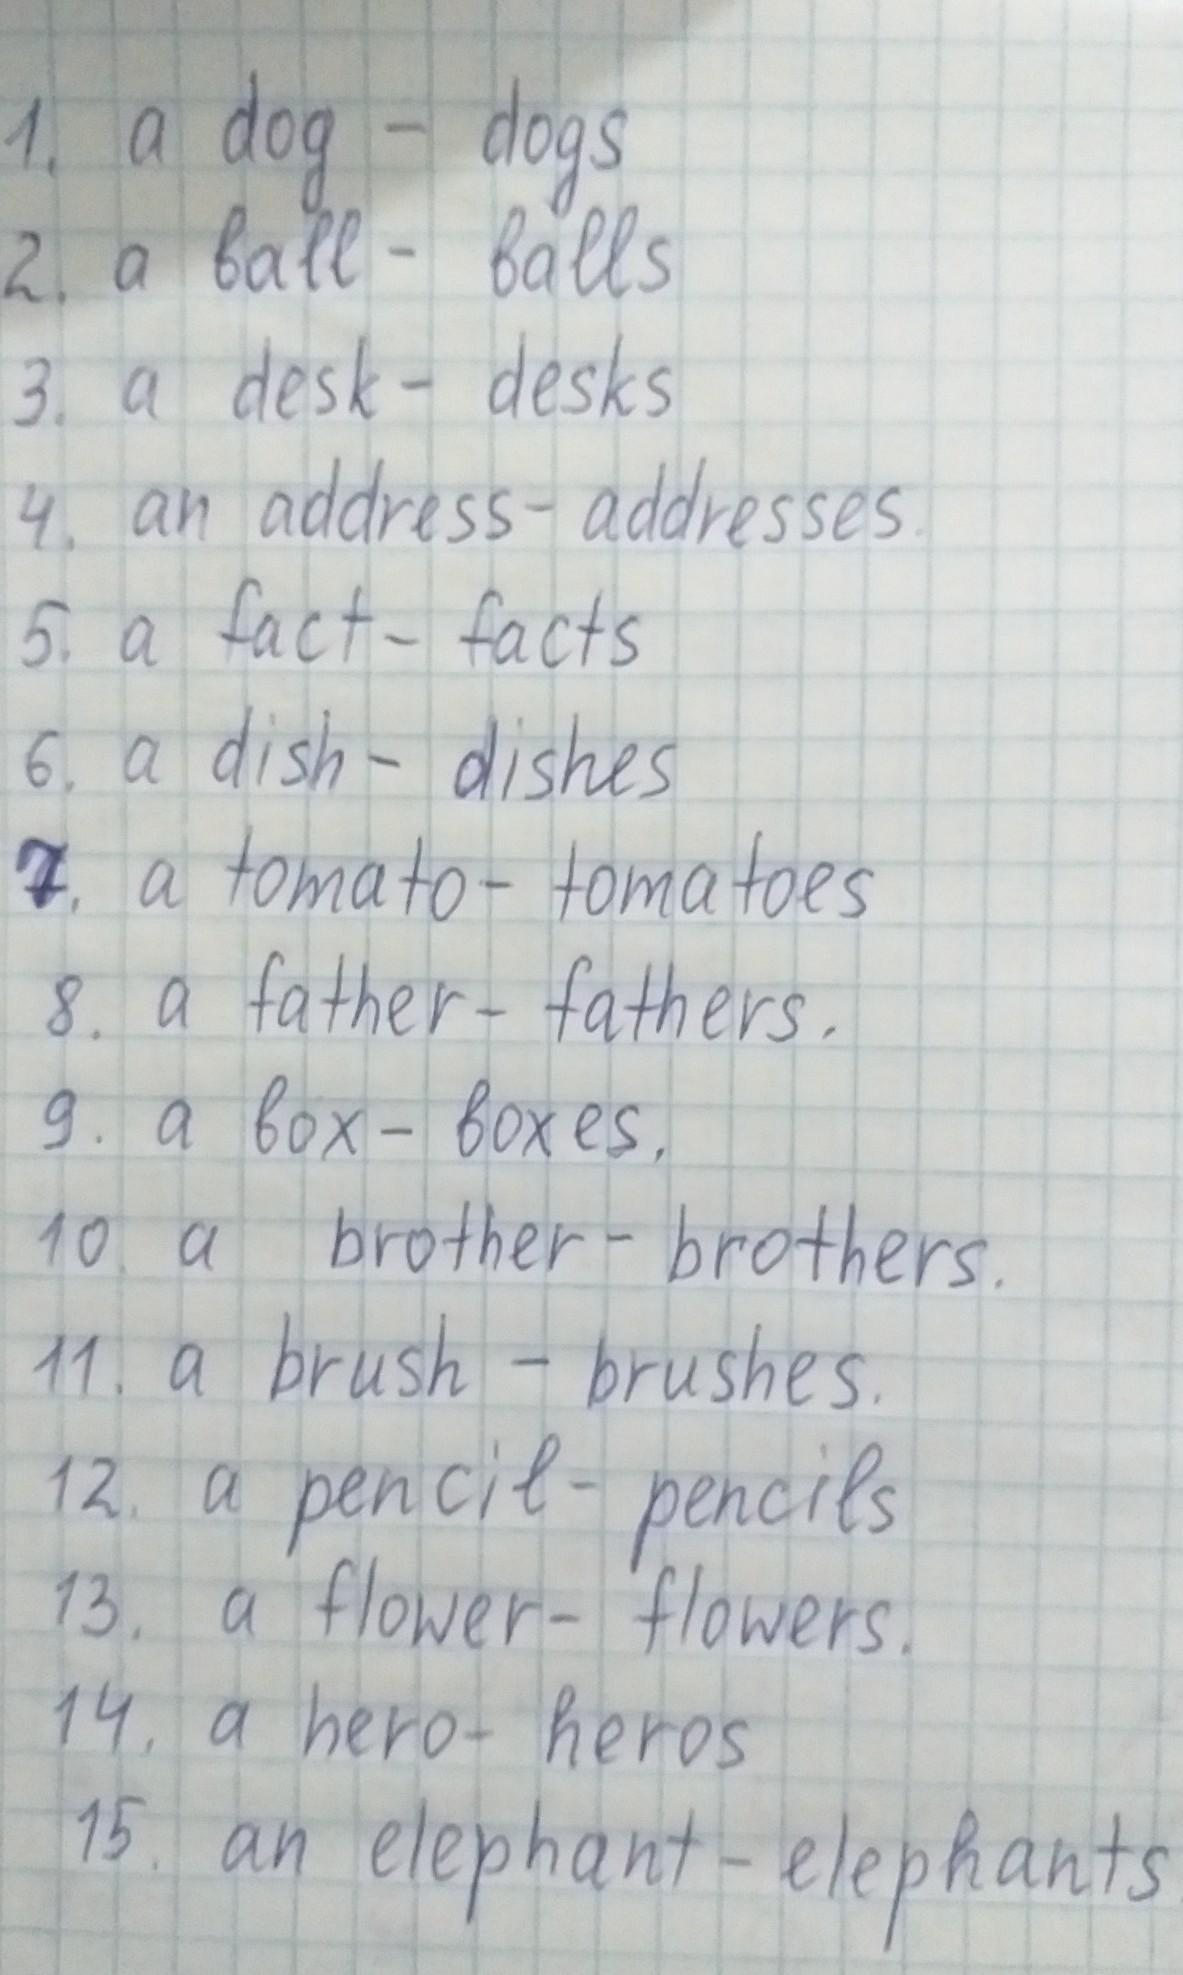 1. a dog - dogs
2. a ball - balls
3. a desk - desks
4. an address - addresses.
5. a fact - facts
6. a dish - dishes
7. a tomato - tomatoes
8. a father - fathers.
9. a box - boxes.
10. a brother - brothers.
11. a brush - brushes.
12. a pencil - pencils
13. a flower - flowers.
14. a hero - heros
15. an elephant - elephants.